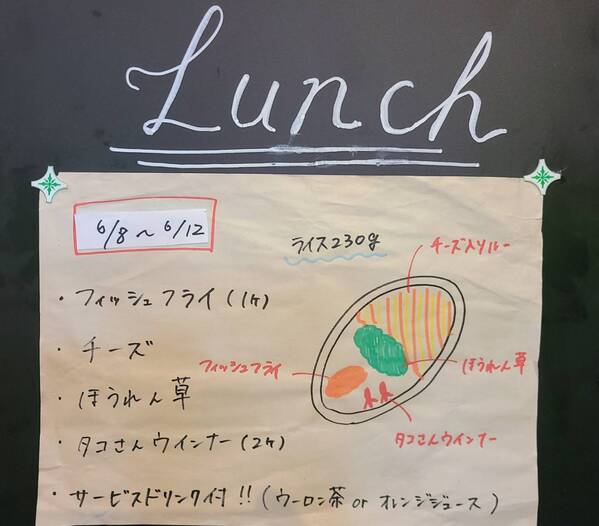 Lunch
6/8～6/12
ライス230g
チーズ入りルー
・フィッシュフライ(1ヶ)
・チーズ
フィッシュフライ
ほうれん草
・ほうれん草
・タコさんウインナー(2ヶ)
タコさんウインナー
・サービスドリンク付!!(ウーロン茶 or オレンジジュース)